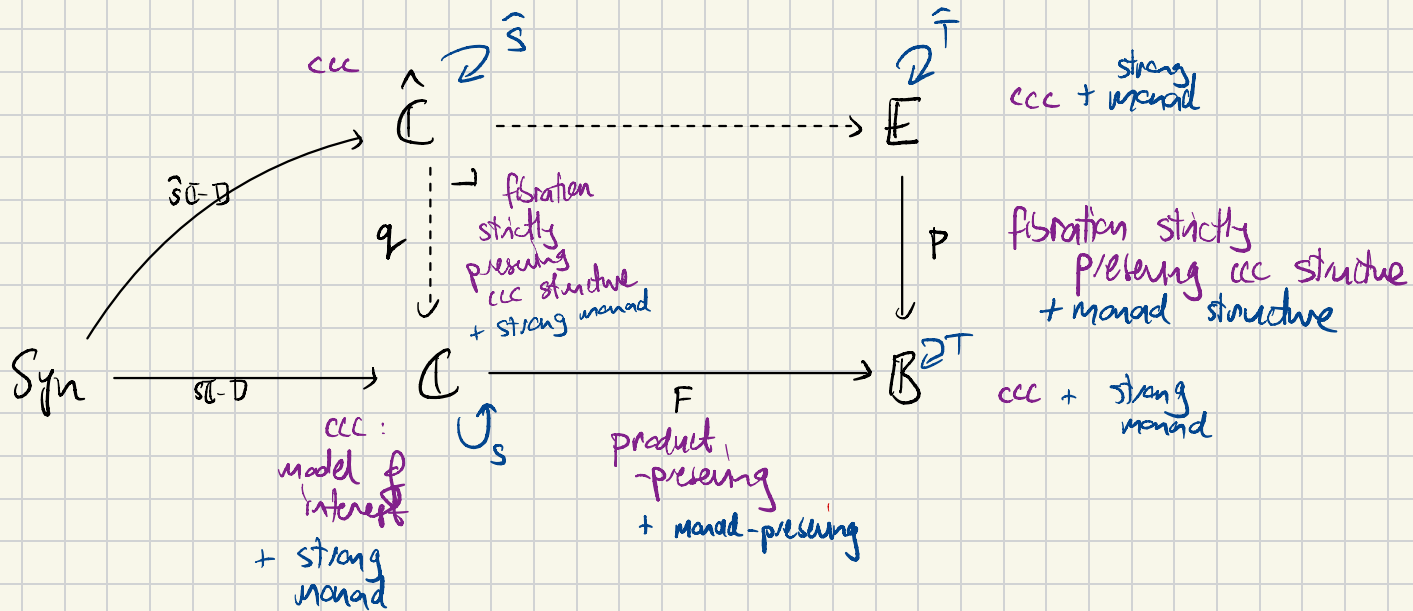 Ŝ
T̂
ccc
strong
ccc + monad
ℂ̂
E
ŝ⟦-⟧
q
fibration
strictly
preserving
ccc structure
+ strong monad
p
fibration strictly
preserving ccc structure
+ monad structure
Syn
s⟦-⟧
ℂ
F
B
T
S
ccc + strong
monad
ccc :
model of
interest
+ strong
monad
product
-preserving
+ monad-preserving